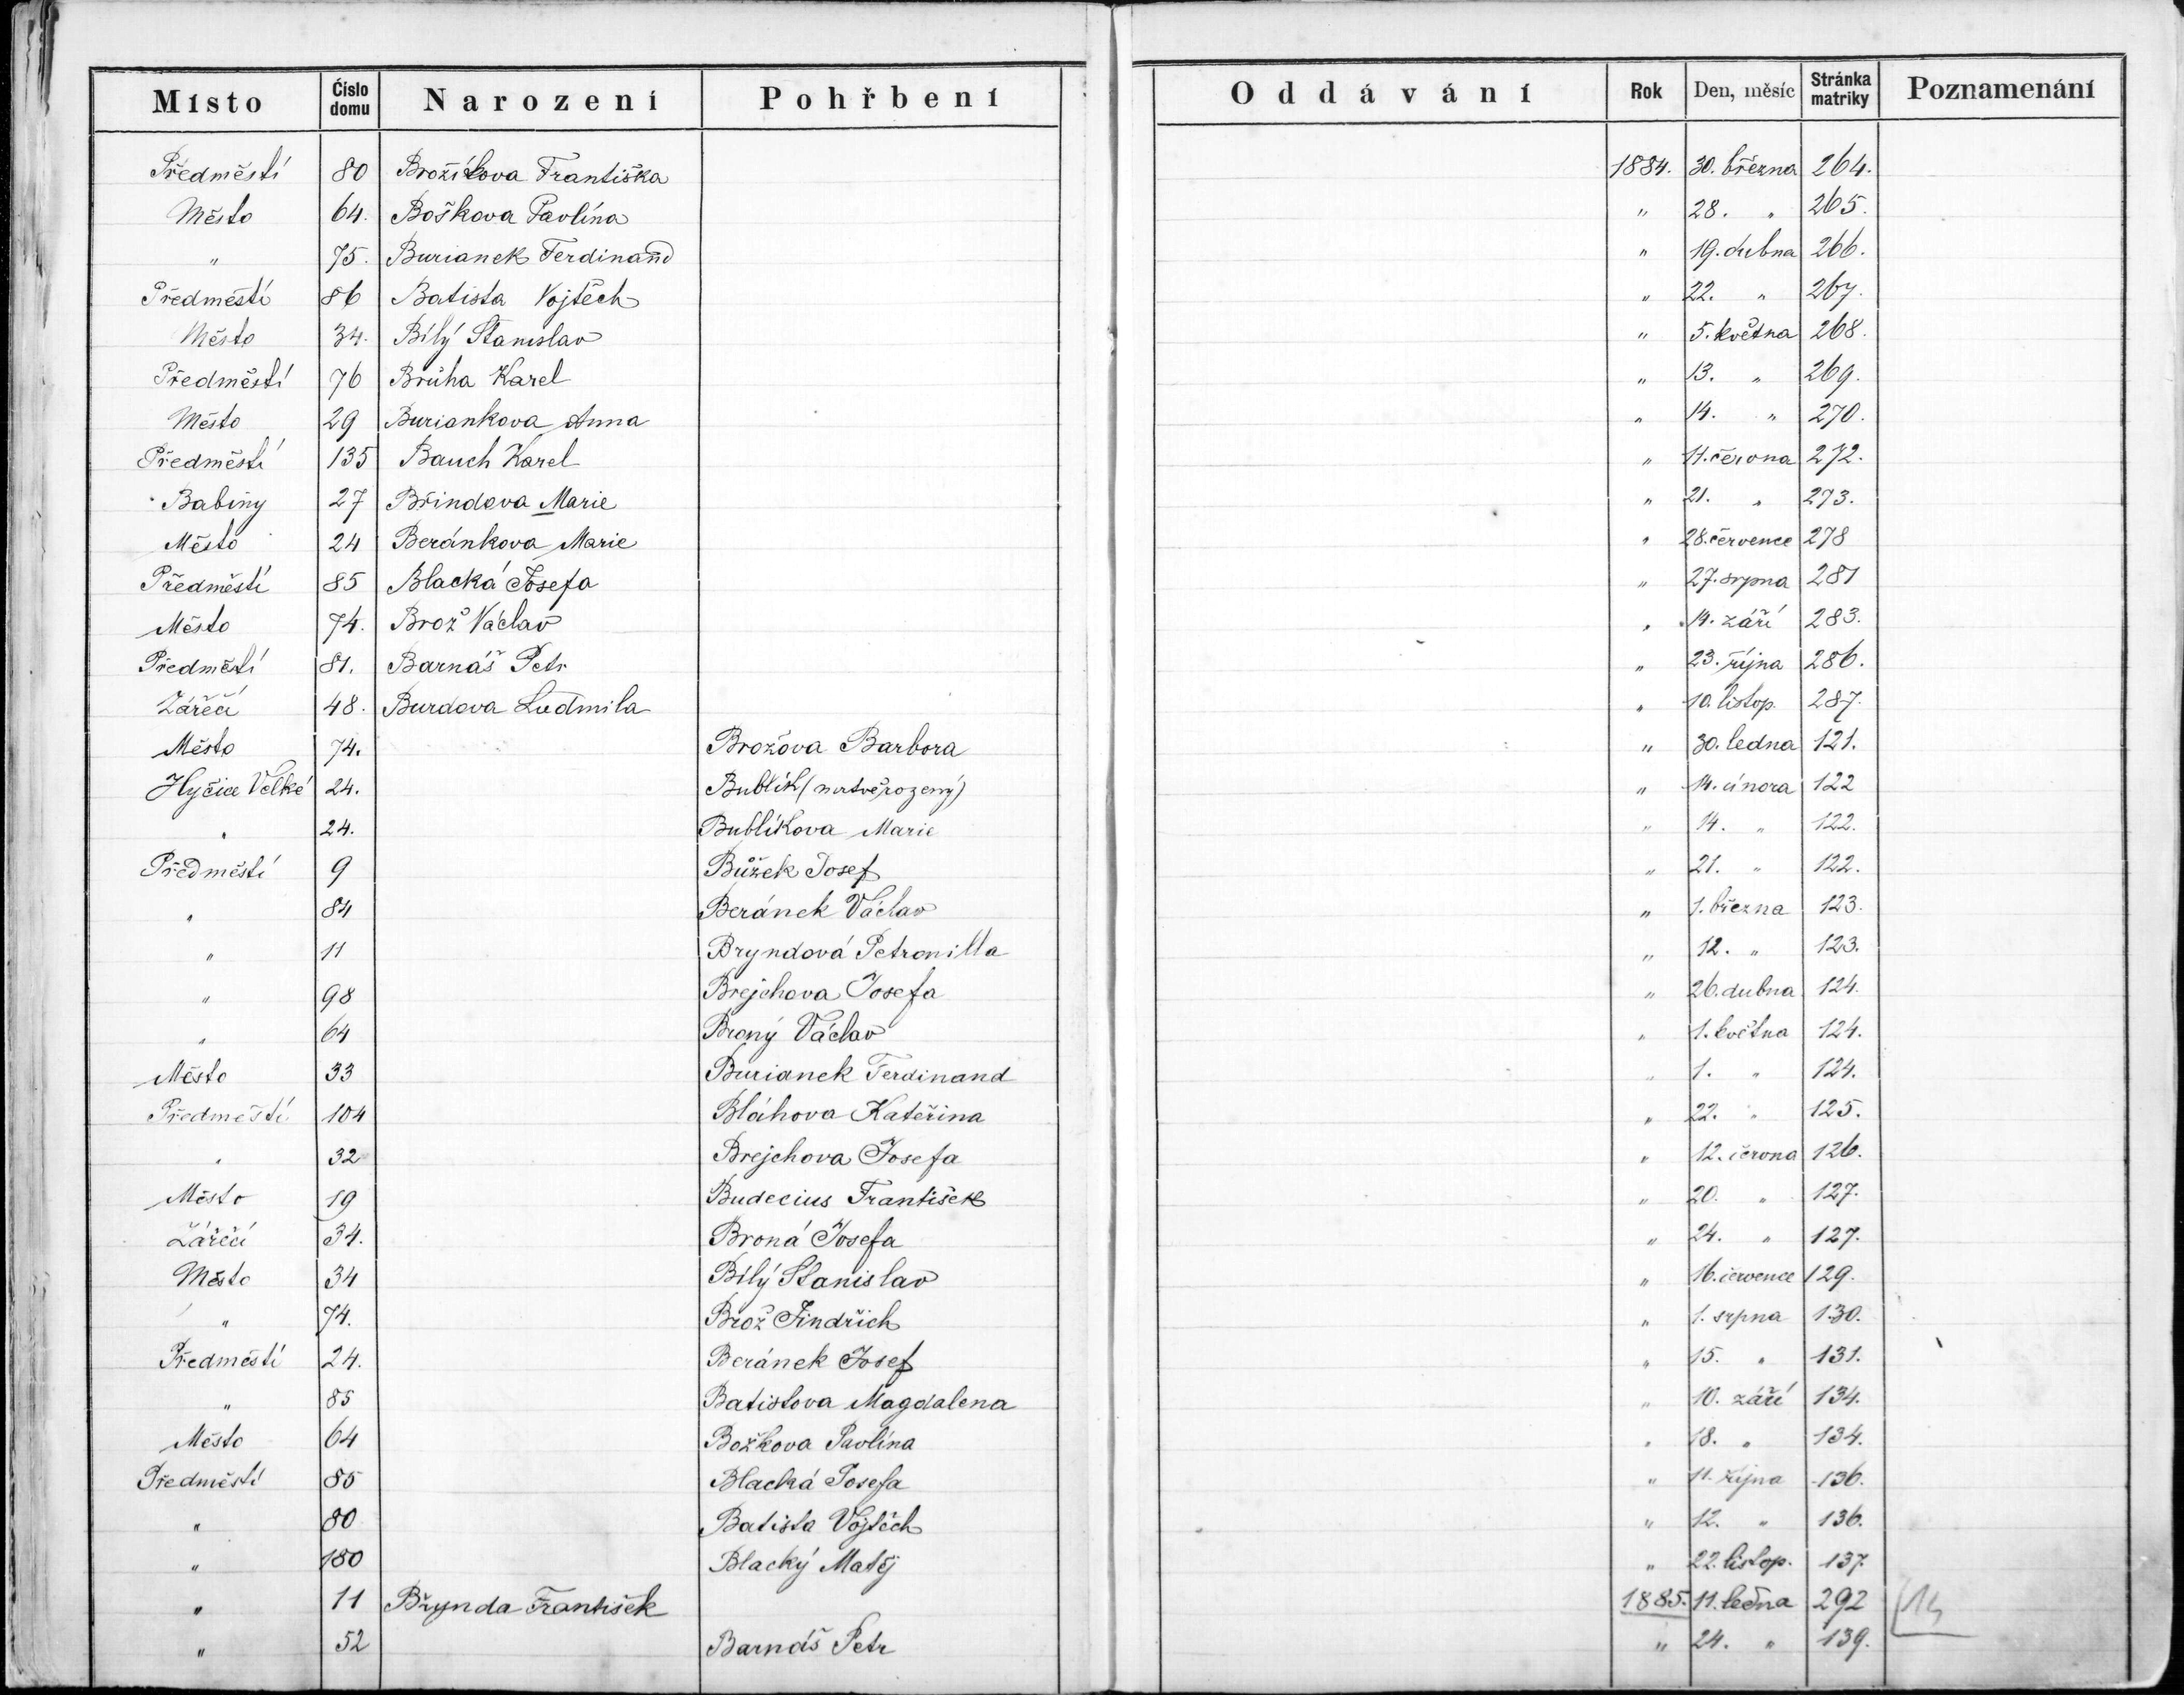 Místo Číslo domu Narození Pohřbení Oddávání Rok Den, měsíc Stránka matriky Poznamenání
Předměstí 80 Brožíkova Františka 1884. 30. března 264.
Město 64. Boškova Pavlína " 28. " 265.
" 75. Burianek Ferdinand " 19. dubna 266.
Předměstí 86 Batista Vojtěch " 22. " 267.
Město 34. Bílý Stanislav " 5. května 268.
Předměstí 76 Brůha Karel " 13. " 269.
Město 29 Buriankova Anna " 14. " 270.
Předměstí 135 Bauch Karel " 11. června 272.
Babiny 27 Břindova Marie " 21. " 273.
Město 24 Beránkova Marie " 28. července 278
Předměstí 85 Blacká Josefa " 27. srpna 281
Město 74. Brož Václav " 14. září 283.
Předměstí 81. Barnáš Petr " 23. října 286.
Zářečí 48. Burdova Ludmila " 10. listop. 287.
Město 74. Brožova Barbora " 30. ledna 121.
Hyčice Velké 24. Bublík (mrtvěrozený) " 14. února 122
" 24. Bublíkova Marie " 14. " 122.
Předměstí 9 Bůžek Josef " 21. " 122.
" 84 Beránek Václav " 1. března 123.
" 11 Bryndová Petronilla " 12. " 123.
" 98 Brejchova Josefa " 26. dubna 124.
" 64 Broný Václav " 1. května 124.
Město 33 Burianek Ferdinand " 1. " 124.
Předměstí 104 Bláhova Kateřina " 22. " 125.
" 32 Brejchova Josefa " 12. června 126.
Město 19 Budecius František " 20. " 127.
Zářečí 34. Broná Josefa " 24. " 127.
Město 34 Bílý Stanislav " 16. července 129.
" 74. Brož Jindřich " 1. srpna 130.
Předměstí 24. Beránek Josef " 15. " 131.
" 85 Batistova Magdalena " 10. září 134.
Město 64 Božkova Pavlína " 18. " 134.
Předměstí 85 Blacká Josefa " 11. října 136.
" 80 Batista Vojtěch " 12. " 136.
" 180 Blacký Matěj " 22. listop. 137.
" 11 Břynda František 1885. 11. ledna 292 14
" 52 Barnáš Petr " 24. " 139.